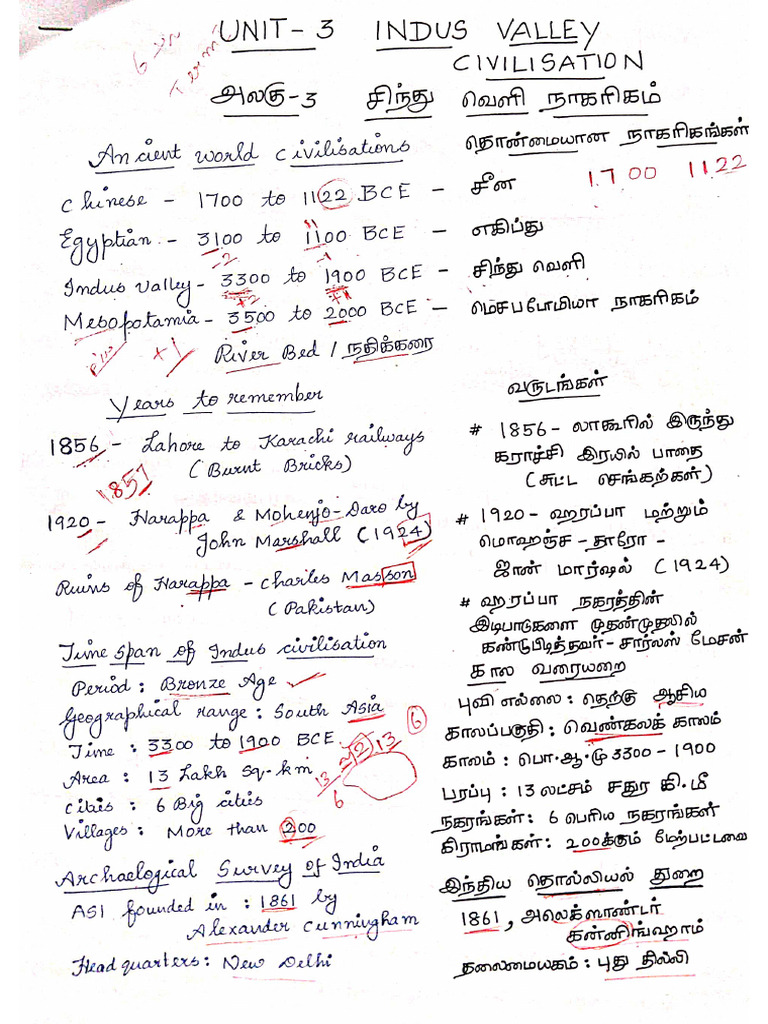 6th Term I
UNIT-3 INDUS VALLEY
CIVILISATION
அலகு-3 சிந்து வெளி நாகரிகம்
Ancient world civilisations
தொன்மையான நாகரிகங்கள்
Chinese - 1700 to 1122 BCE - சீன
1700 1122
Egyptian - 3100 to 1100 BCE - எகிப்து
-2 -1
Indus valley - 3300 to 1900 BCE - சிந்து வெளி
+2 +1
Mesopotamia - 3500 to 2000 BCE - மெசபடோமியா நாகரிகம்
+1
River Bed / நதிக்கரை
Years to remember
1856 - Lahore to Karachi railways
(Burnt Bricks)
1857
1920 - Harappa & Mohenjo-Daro by
John Marshall (1924)
Ruins of Harappa - Charles Masson
(Pakistan)
வருடங்கள்
# 1856 - லாகூரில் இருந்து
கராச்சி இரயில் பாதை
(சுட்ட செங்கற்கள்)
# 1920 - ஹரப்பா மற்றும்
மொஹஞ்ச - தாரோ -
ஜான் மார்ஷல் (1924)
# ஹரப்பா நகரத்தின்
இடிபாடுகளை முதன்முதலில்
கண்டுபிடித்தவர் - சார்லஸ் மேசன்
Time span of Indus civilisation
Period : Bronze Age
Geographical range : South Asia
Time : 3300 to 1900 BCE
Area : 13 Lakh sq-km
Cities : 6 Big cities
Villages : More than 200
6
13 2 13
6
கால வரையறை
புவி எல்லை : தெற்கு ஆசிய
காலப்பகுதி : வெண்கலக் காலம்
காலம் : பொ.ஆ.மு 3300 - 1900
பரப்பு : 13 லட்சம் சதுர கி.மீ
நகரங்கள் : 6 பெரிய நகரங்கள்
கிராமங்கள் : 200க்கும் மேற்பட்டவை
Archaelogical Survey of India
ASI founded in : 1861 by
Alexander Cunningham
Headquarters : New Delhi
இந்திய தொல்லியல் துறை
1861, அலெக்ஸாண்டர்
கன்னிங்ஹாம்
தலைமையகம் : புது தில்லி